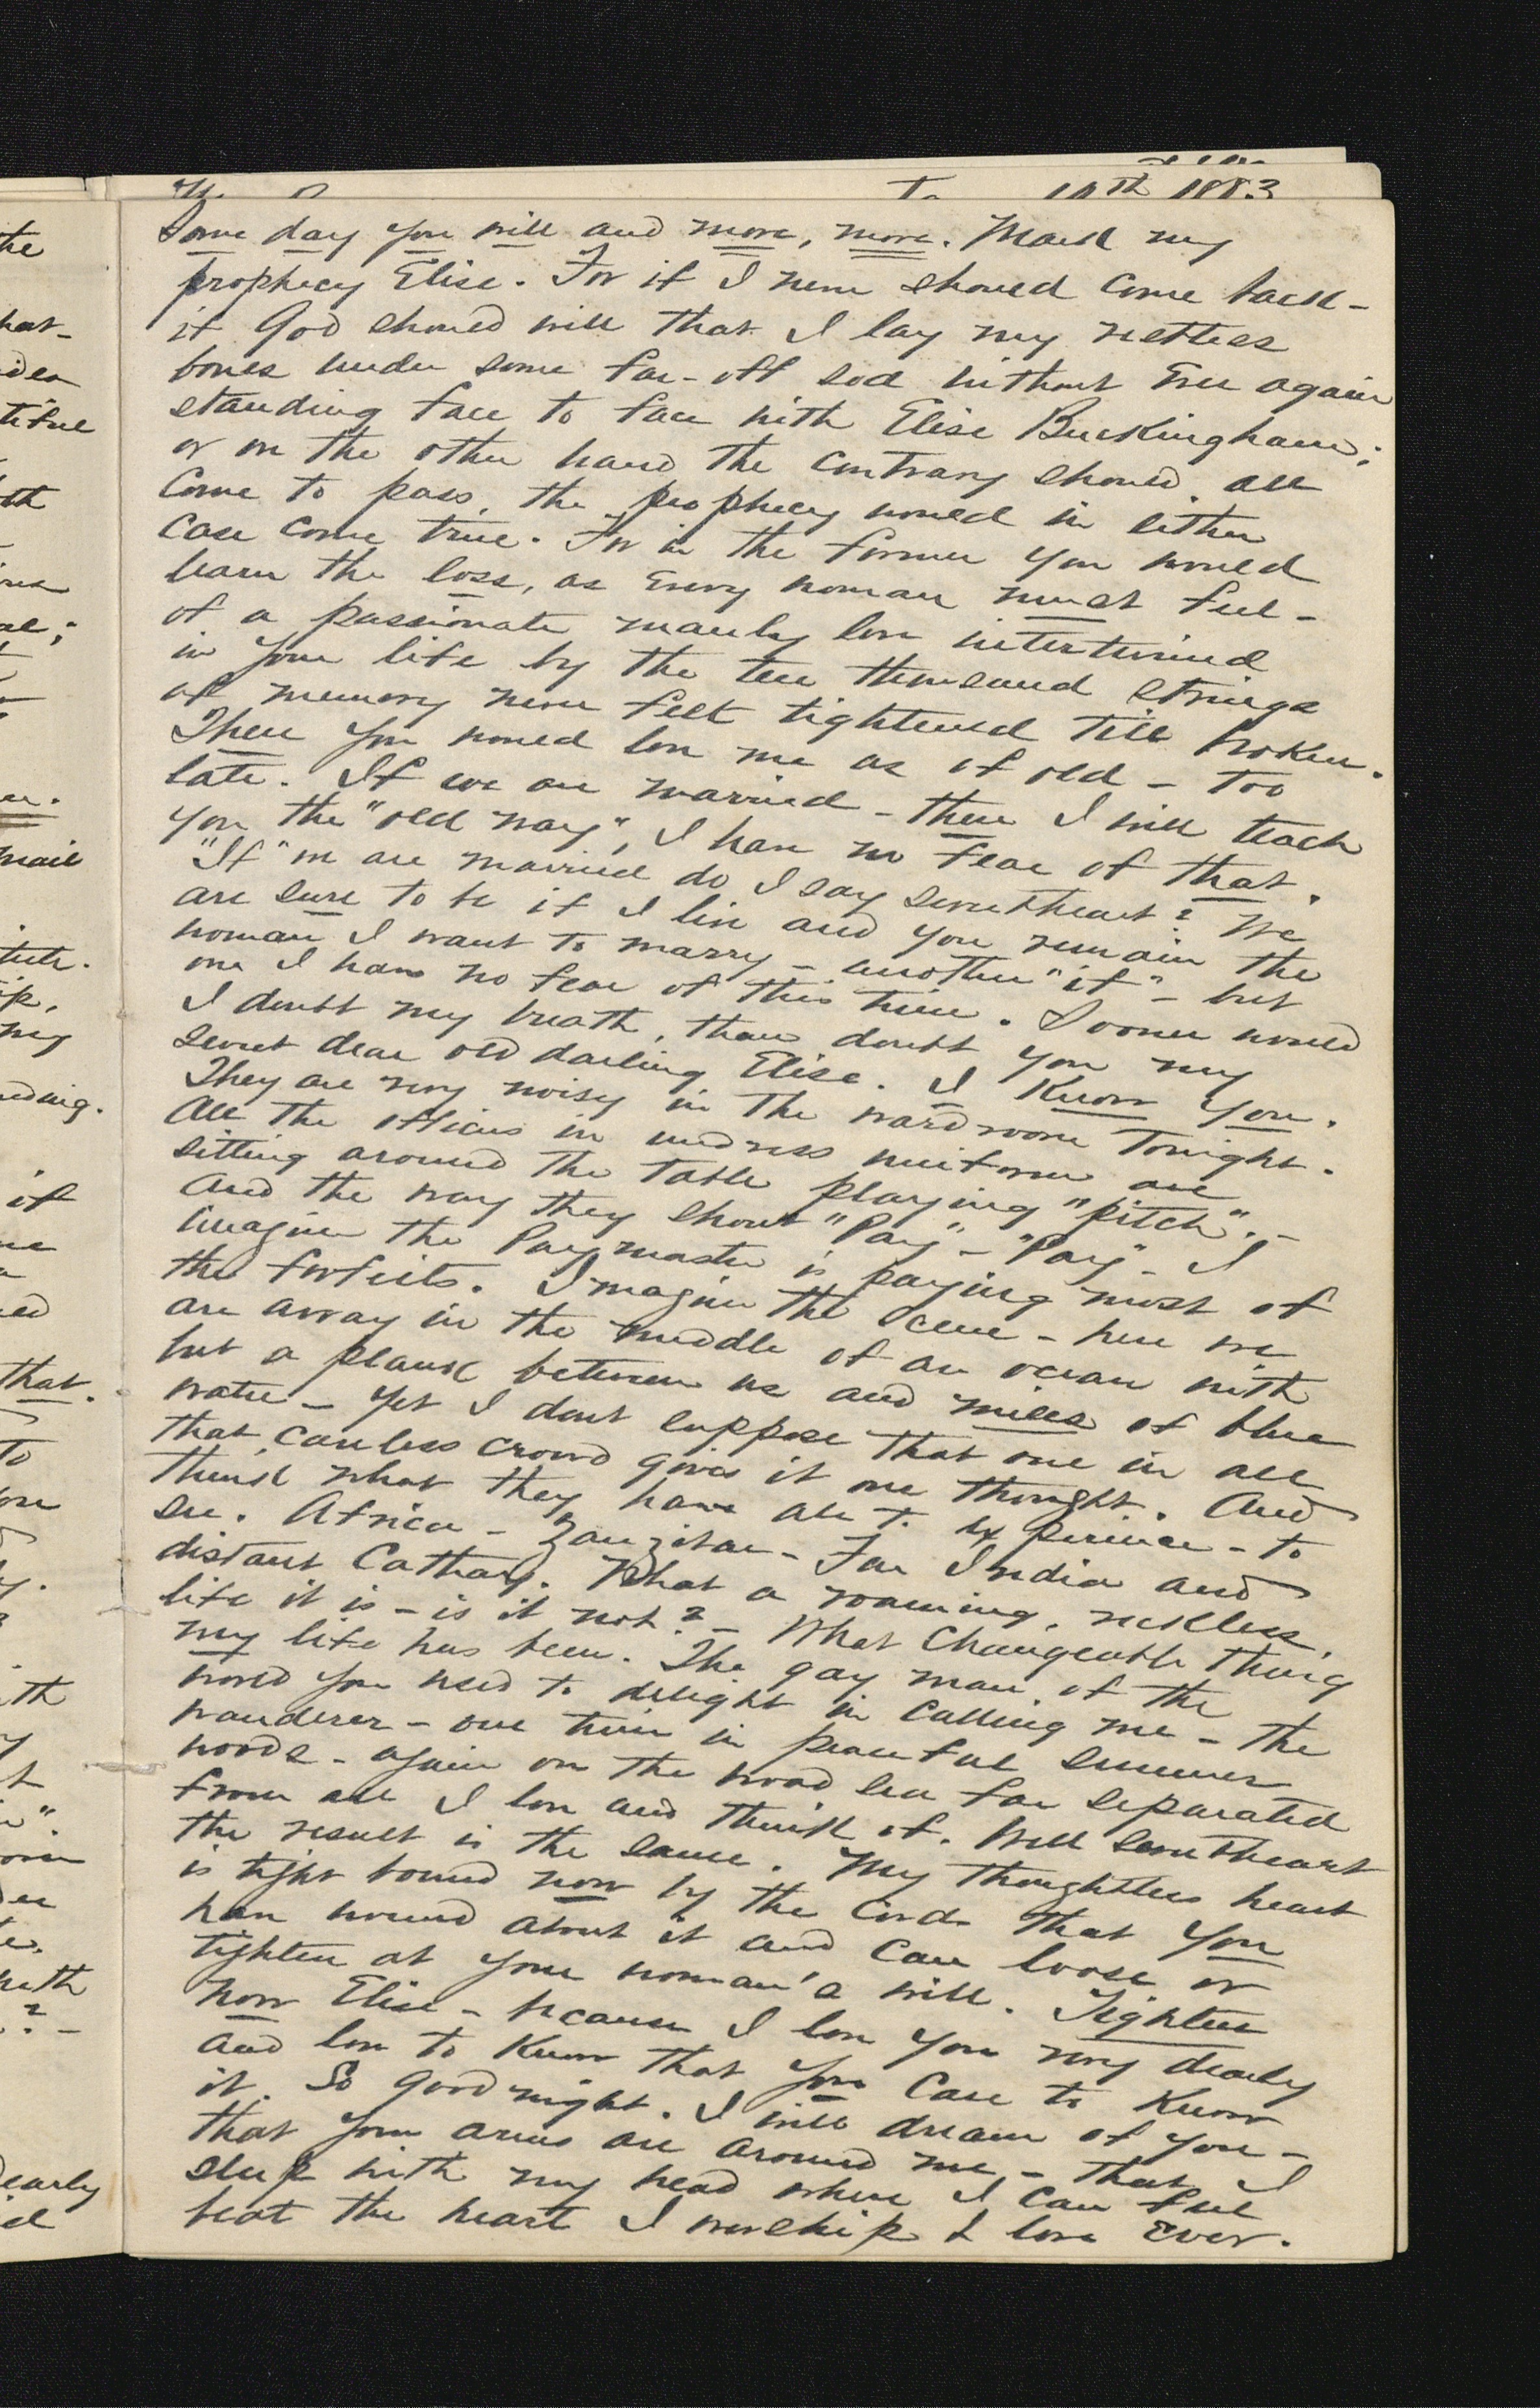 10th 1883
Some day you will and more, more. Mark my
prophecy Elise. For if I never should come back -
if God should will that I lay my restless
bones under some far-off sod without ever again
standing face to face with Elise Buckingham;
or on the other hand the contrary should all
come to pass, the prophecy would in either
case come true. For in the former you would
learn the loss, as every woman must feel -
of a passionate manly love intertwined
in your life by the ten thousand strings
of memory never felt tightened till broken.
Then you would love me as of old - too
late. If we are married - then I will teach
you the "old way", I have no fear of that.
"If" we are married do I say sweetheart? We
are sure to be if I live and you remain the
woman I want to marry - another "if" - but
one I have no fear of this time. Sooner would
I doubt my breath, than doubt you my
sweet dear old darling Elise. I know you.
They are very noisy in the wardroom tonight.
All the officers in undress uniform are
sitting around the table playing "pitch". -
And the way they shout "Pay" - "Pay" - I
imagine the Paymaster is paying most of
the forfeits. Imagine the scene - here we
are away in the middle of an ocean with
but a plank between us and miles of blue
water - yet I dont suppose that one in all
that careless crowd gives it one thought. And
think what they have all to experience - to
see. Africa - Zanzibar - Far India and
distant Cathay. What a roaming, reckless,
life it is - is it not? - What changeable thing
my life has been. The gay man of the
world you used to delight in calling me - the
wanderer - one time in peaceful summer
woods - again on the broad sea far separated
from all I love and think of. Well sweetheart
the result is the same. My thoughtless heart
is tight bound now by the cords that you
have wound about it and can loose or
tighten at your woman's will. Tighten
now Elise - because I love you very dearly
and love to know that you care to know
it. So good night. I will dream of you -
that your arms are around me, - that I
sleep with my head where I can feel
beat the heart I worship & love ever.
the
that.
if
mail
To
with
early